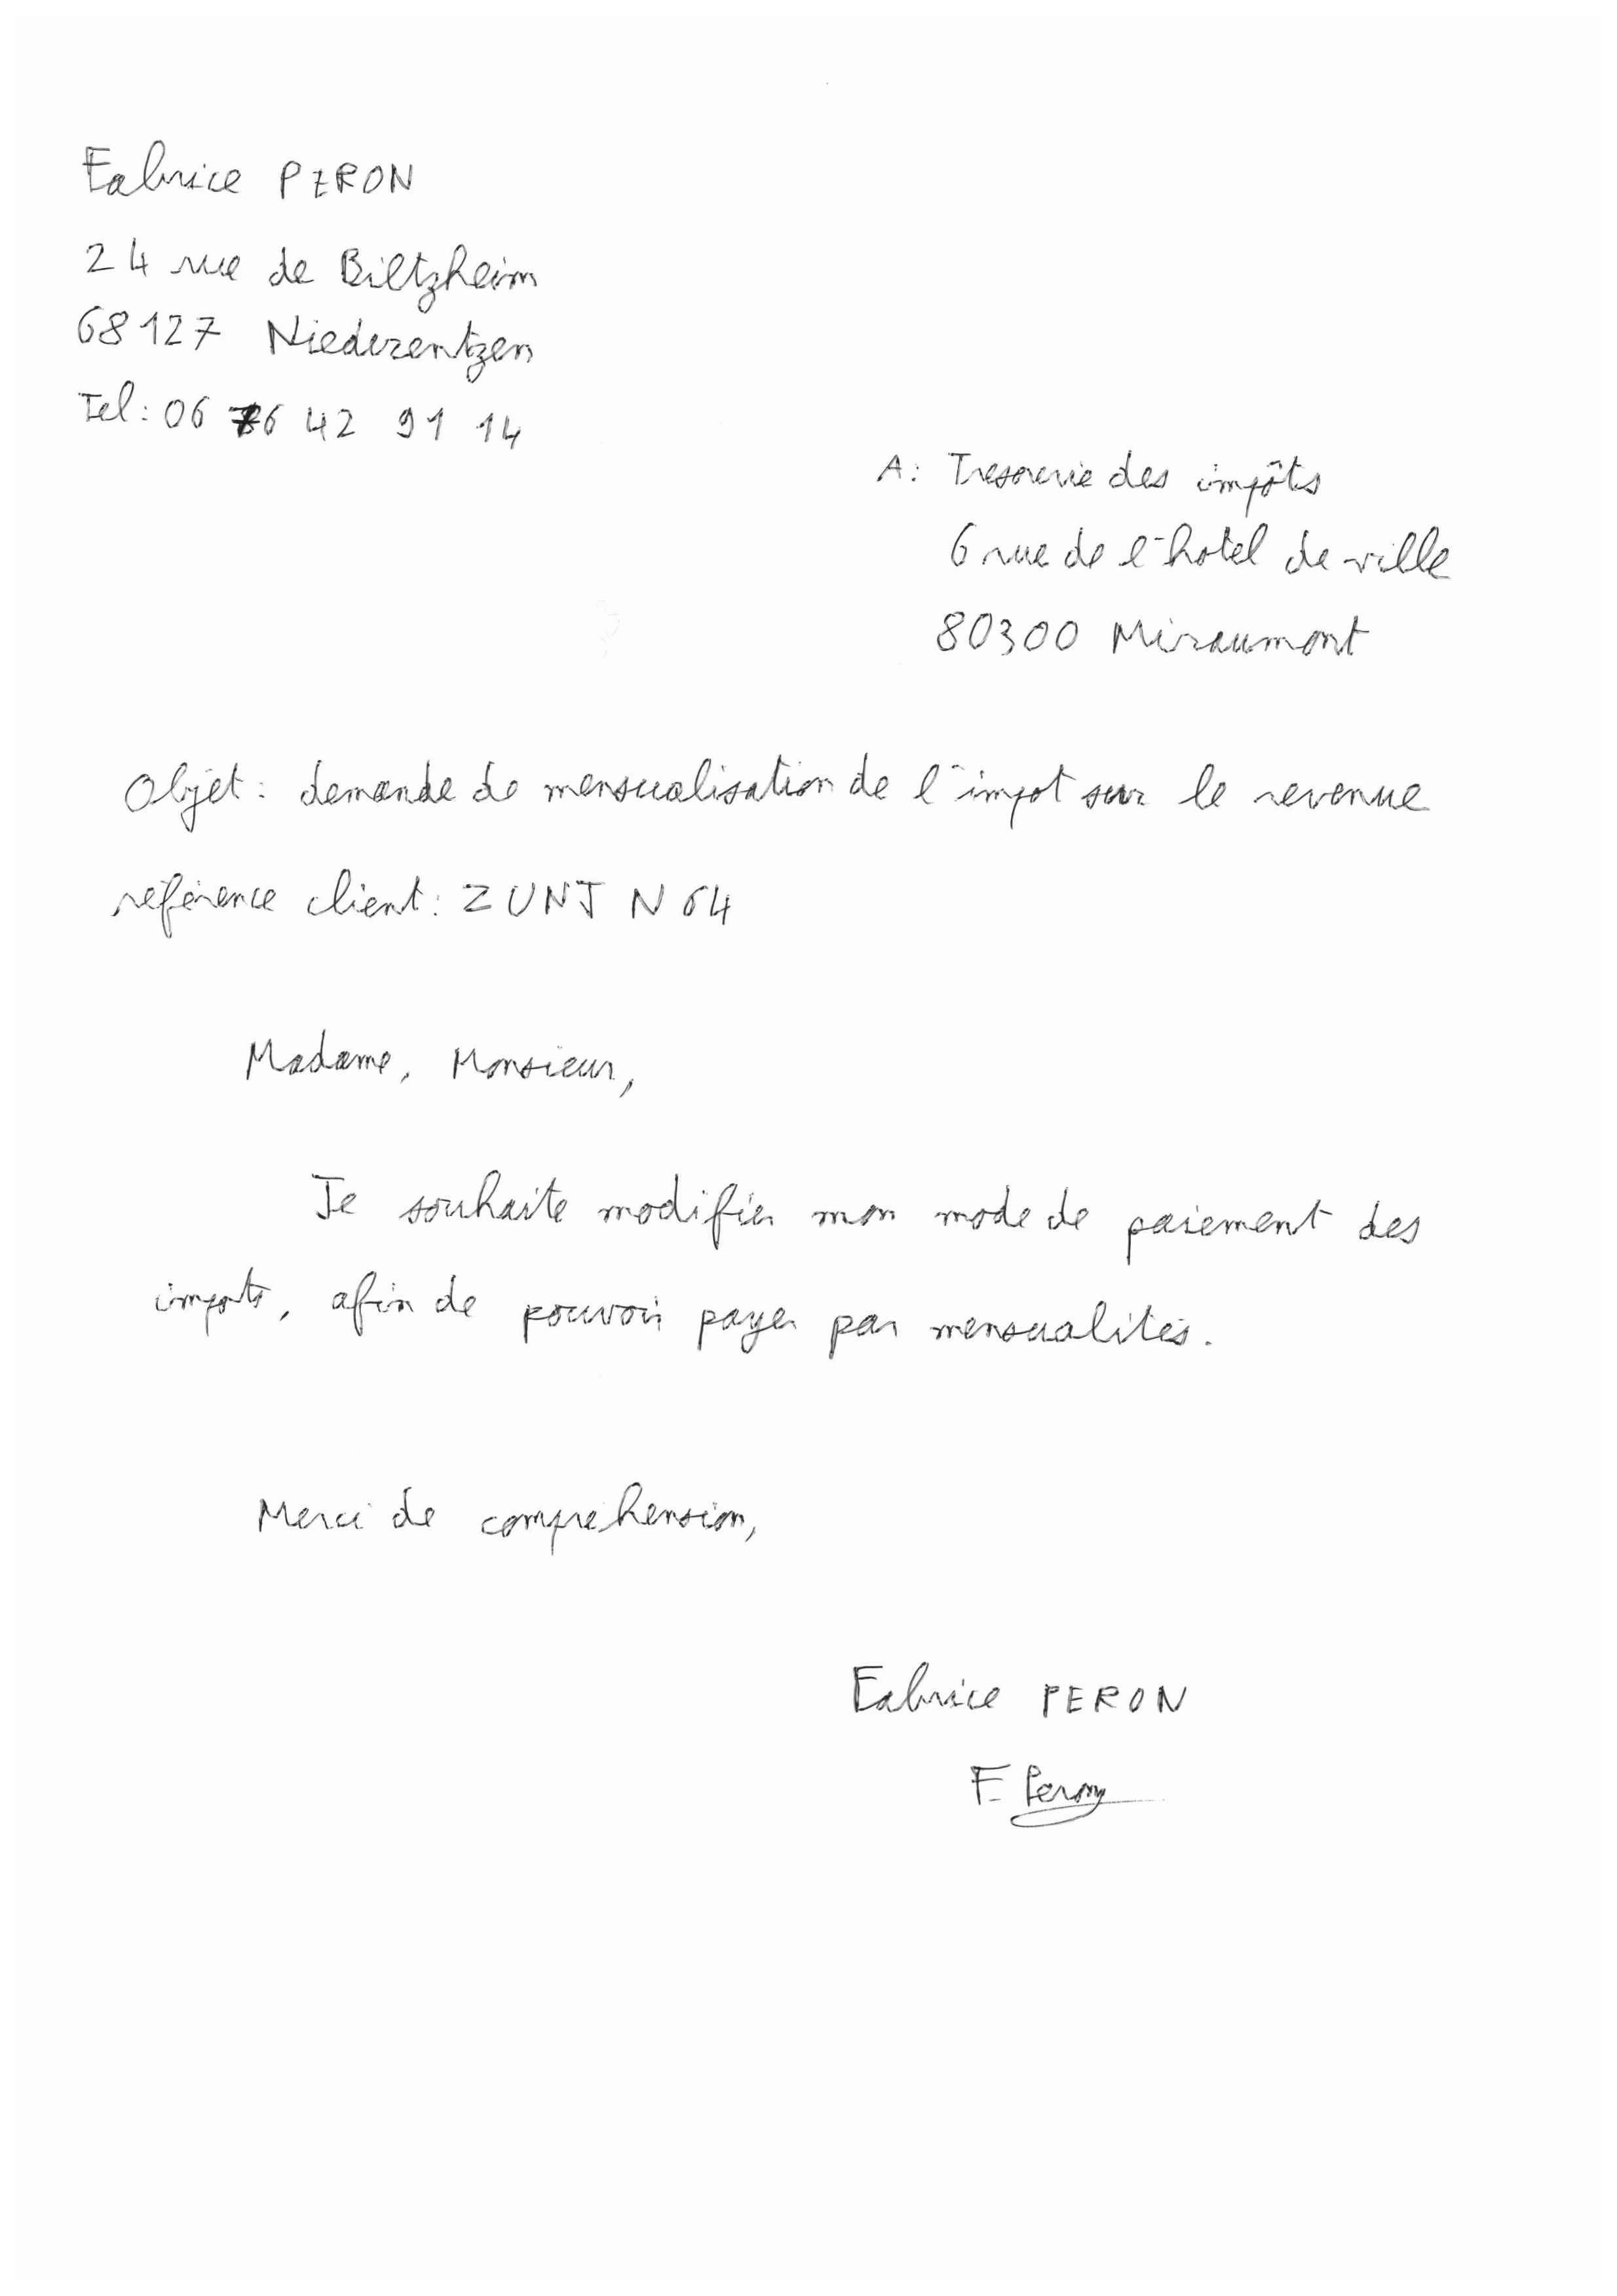 Fabrice PERON
24 rue de Biltzheim
68127 Niederentzen
Tel: 06 76 42 91 14
A: Tresorerie des impôts
6 rue de l'hotel de ville
80300 Miraumont
Objet: demande de mensualisation de l'impot sur le revenue
réference client: ZUNJN64
Madame, Monsieur,
Je souhaite modifier mon mode de paiement des
impots, afin de pouvoir payer par mensualités.
Merci de compréhension,
Fabrice PERON
F. Peron